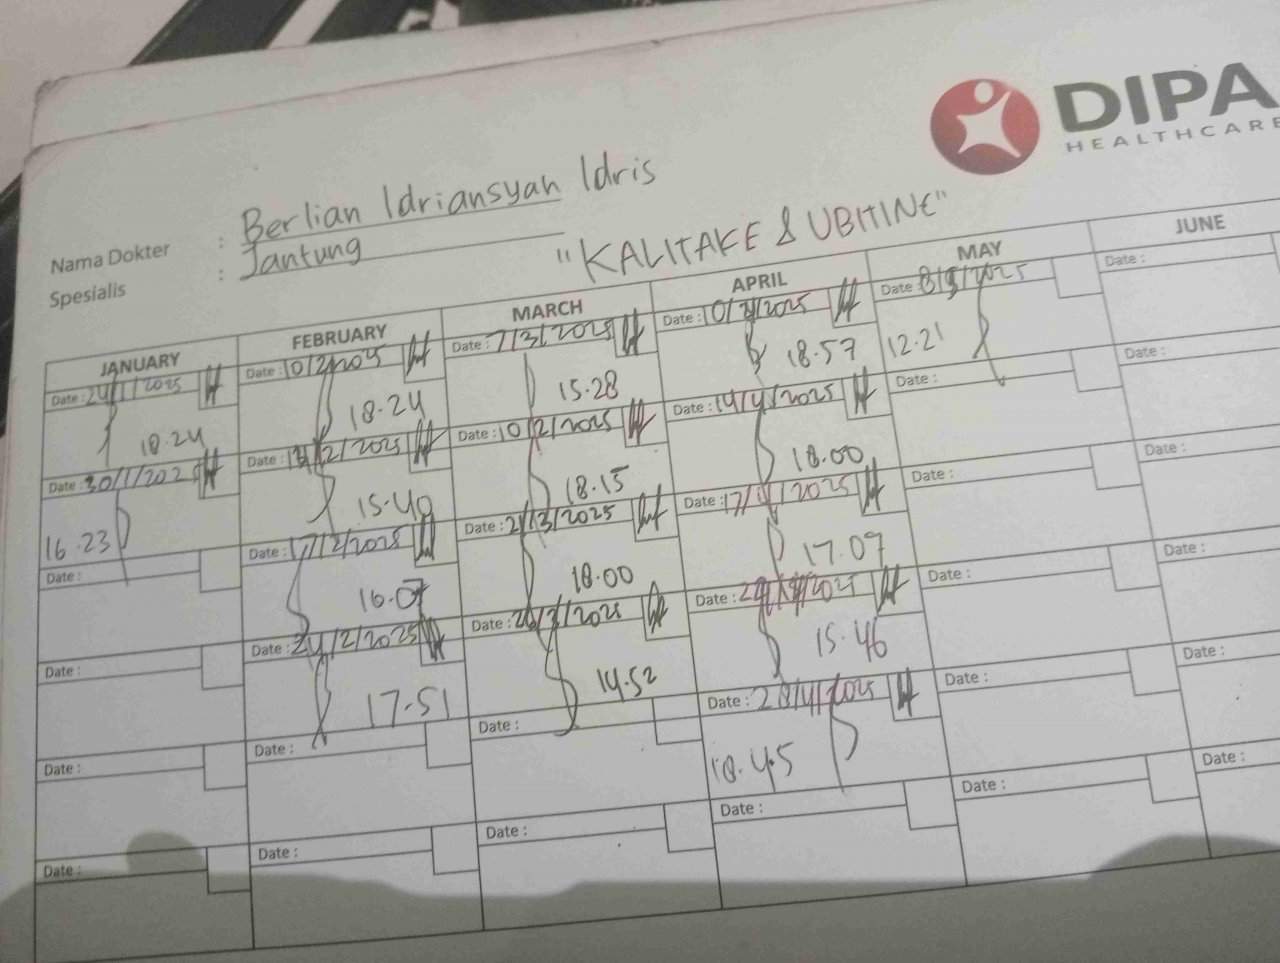 DIPA
HEALTHCARE
Nama Dokter : Berlian Idriansyah Idris
Spesialis : Jantung
"KALITAKE & UBITINE"
JANUARY
Date : 24/1/2025
18.24
Date : 30/1/2025
16.23
Date :
Date :
Date :
Date :
FEBRUARY
Date : 10/2/2025
18.24
Date : 13/2/2025
15.40
Date : 17/2/2025
16.07
Date : 24/2/2025
17.51
Date :
Date :
MARCH
Date : 7/3/2025
15.28
Date : 10/2/2025
18.15
Date : 21/3/2025
18.00
Date : 26/3/2025
14.52
Date :
Date :
APRIL
Date : 10/4/2025
18.57
Date : 14/4/2025
18.00
Date : 17/4/2025
17.09
Date :
15.46
Date : 28/4/2025
18.45
Date :
MAY
Date : 8/5/2025
12.21
Date :
Date :
Date :
Date :
Date :
JUNE
Date :
Date :
Date :
Date :
Date :
Date :